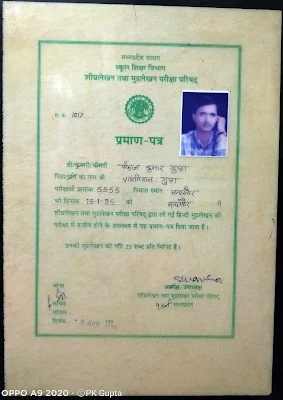 मध्यप्रदेश शासन
स्कूल शिक्षा विभाग
शीघ्रलेखन तथा मुद्रलेखन परीक्षा परिषद्
स. क्र. 1017
प्रमाण-पत्र
श्री/कुमारी/श्रीमती पंकज कुमार गुप्ता
पिता/पति का नाम श्री गुप्ता
परीक्षार्थी क्रमांक 5555 निवास स्थान मन्दसौर
को दिनांक 15-1-95 को मन्दसौर में
शीघ्रलेखन तथा मुद्रलेखन परीक्षा परिषद् द्वारा ली गई हिन्दी मुद्रलेखन की
परीक्षा में उत्तीर्ण होने के उपलक्ष्य में यह प्रमाण-पत्र दिया जाता है।
उनकी मुद्रलेखन की गति 25 शब्द प्रति मिनिट है।
अध्यक्ष, उपाध्यक्ष
शीघ्रलेखन तथा मुद्रलेखन परीक्षा परिषद्
मध्यप्रदेश
सचिव
भोपाल
दिनांक
OPPO A9 2020 · ©PK Gupta